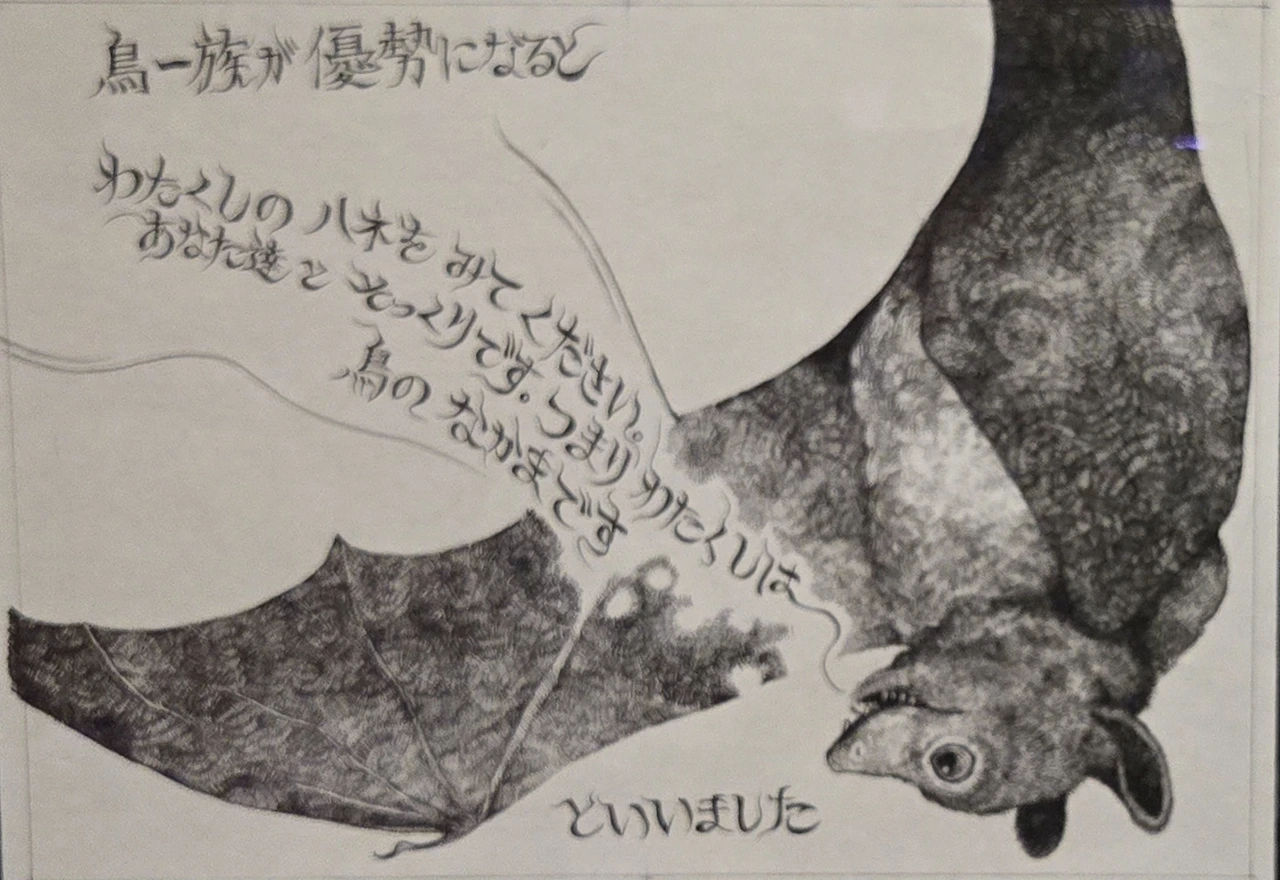 鳥一族が優勢になると
わたくしのハネをみてください。
あなた達とそっくりです.つまりわたくしは
鳥のなかまです
といいました